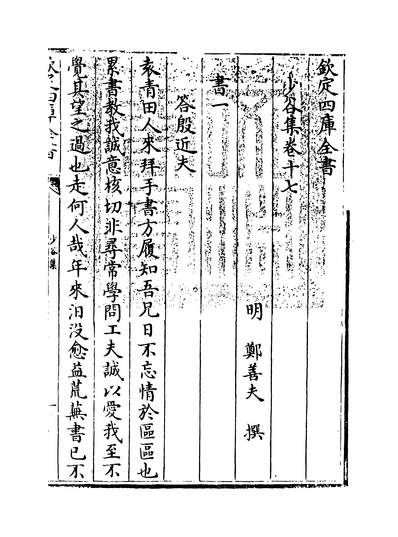 欽定四庫全書
少谷集卷十七
明 鄭善夫 撰
書一
答殷近夫
袁青田人來拜手書方履知吾兄日不忘情於區區也
累書教我誠意核切非尋常學問工夫誠以愛我至不
覺其望之過也走何人哉年來汨没愈益荒蕪書已不
少谷集